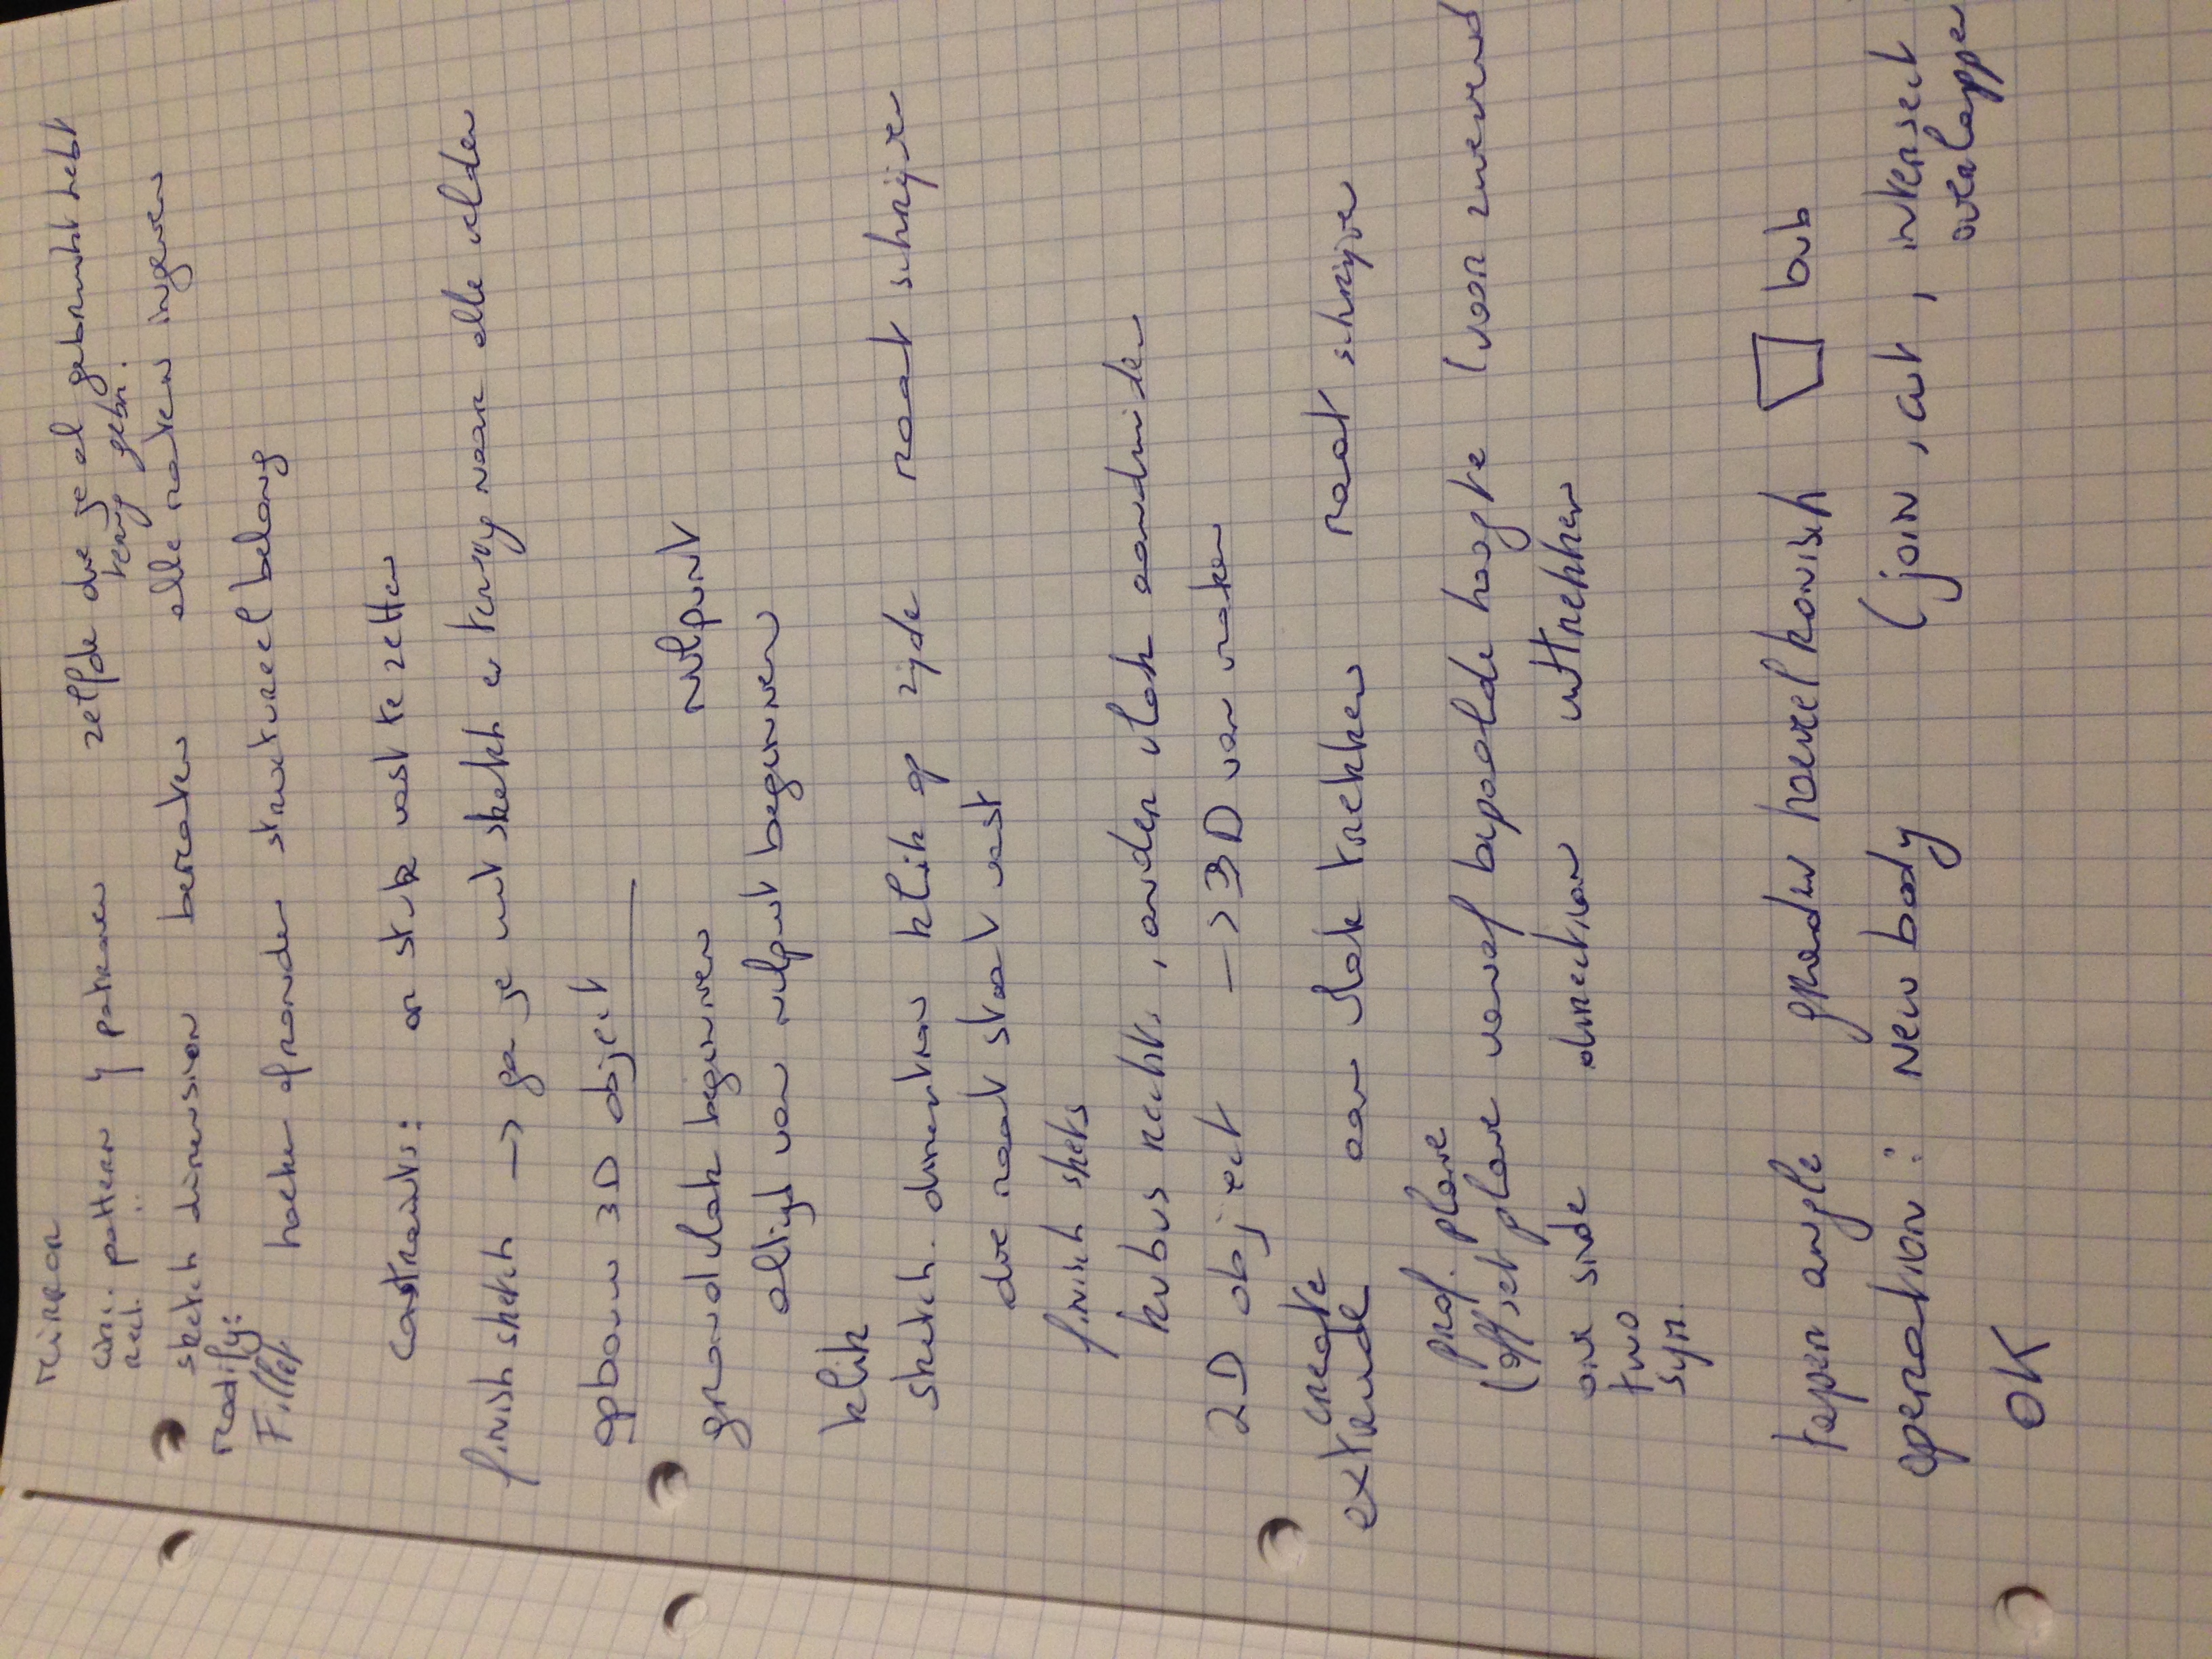 Mirror
circ. pattern } patronen zelfde die je al gebruikt hebt
rect. " terug gebr.
sketch dimension bematen alle maten ingeven
Modify:
Fillet hoeken afronden structureel belang
constraints: om stuk vast te zetten
finish sketch -> ga je uit sketch en terug naar alle velden
opbouw 3D object
grondvlak beginnen nulpunt
altijd van nulpunt beginnen
klik
sketch. dimention klik op zijde maat schrijven
die maat staat vast
finisch skets
kubus rechts, ander vlak aanduiden
2D object -> 3D van maken
create
extrude aan vlak trekken maat schrijven
prof. plane
(offset plane vanaf bepaalde hoogte (voor zwevend
one side direction uittrekken
two
sym.
taper angle graden hoeveel konisch bvb
operation: New body (join, cut, intersect
overlappen
OK